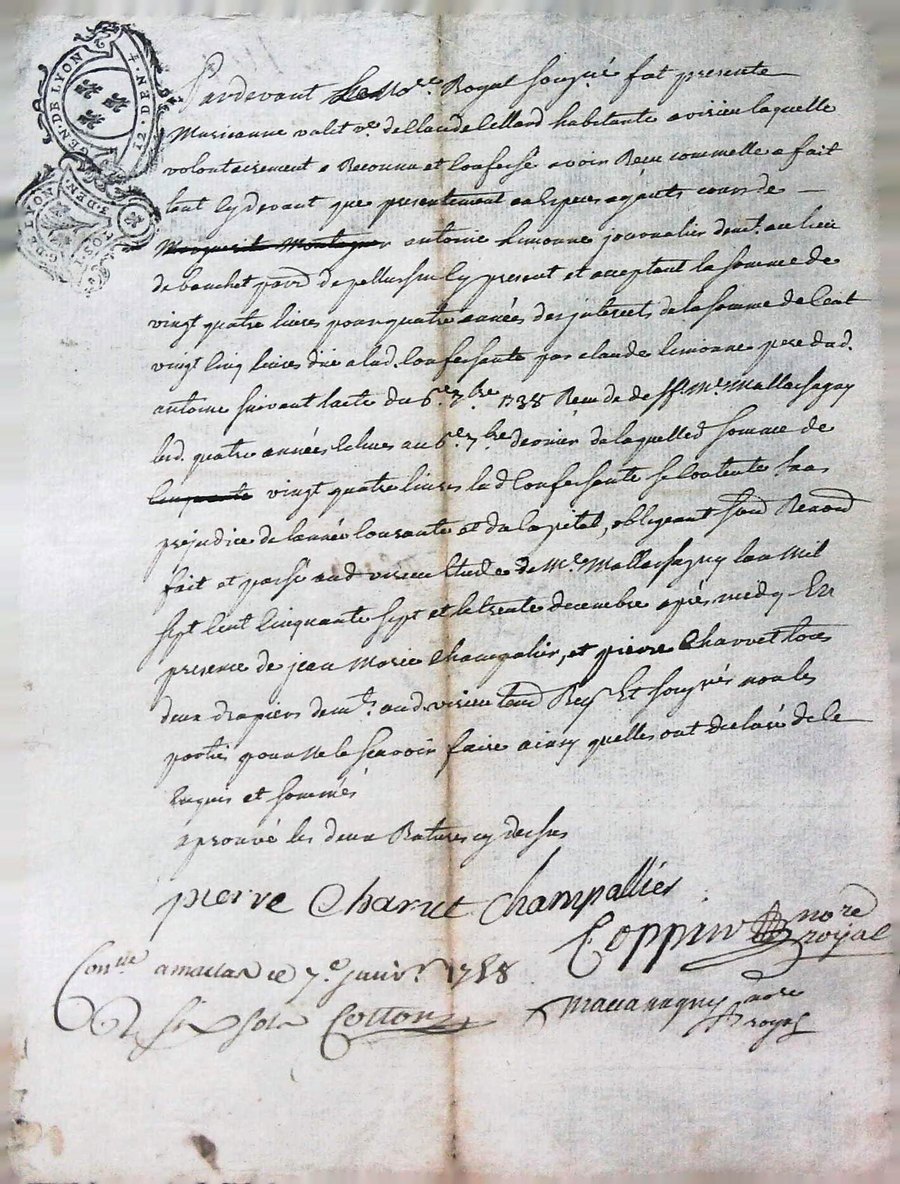 GEN. DE LYON
12. DEN. 4
G. DE LYON
2. DEN.
Pardevant Le No.re Royal Sousné fut presente
Marieanne valet v.e de Claude Cellard habitante a virieu laquelle
volontairement a Reconnu et Confessé avoir Reçu comme elle a fait
tant Cydevant que presentement en Especes ayants cours de
antoine Limonne journalier demt. au lieu
de bouchet parr.e de pellussin Cy present et acceptant la somme de
vingt quatre livres pour quatre années des jnterets de la somme de Cent
vingt Cinq livres due a lad. Confessante par claude limonne pere dud.
antoine suivant lacte du 6.e 7.bre 1738 Recu de Me. Mallassagny
lesd. quatre années Echues au 6.e 7.bre dernier de laquelle somme de
vingt quatre livres lad Confessante se Contente sans
préjudice de lannée Courante et du Capital, obligeant sand Renond
fait et passé aud virieu Etude de M.e Mallassagny lan Mil
sept Cent Cinquante sept et le trente decembre après midy En
presence de jean Marie Champalier, et pierre Charvet tous
deux drapiers demt. aud. virieu Et sousnés non les
parties pour ne le sçavoir faire ainsy quelles ont declaré de ce
Enquis et sommés
aprouvé les deux Ratures cy dessus
pierre Charvet Champallier
Coppin no re
royal
Con.lle a maclas ce 7.e janv.r 1758
Cotton
Massassagny nore
royal